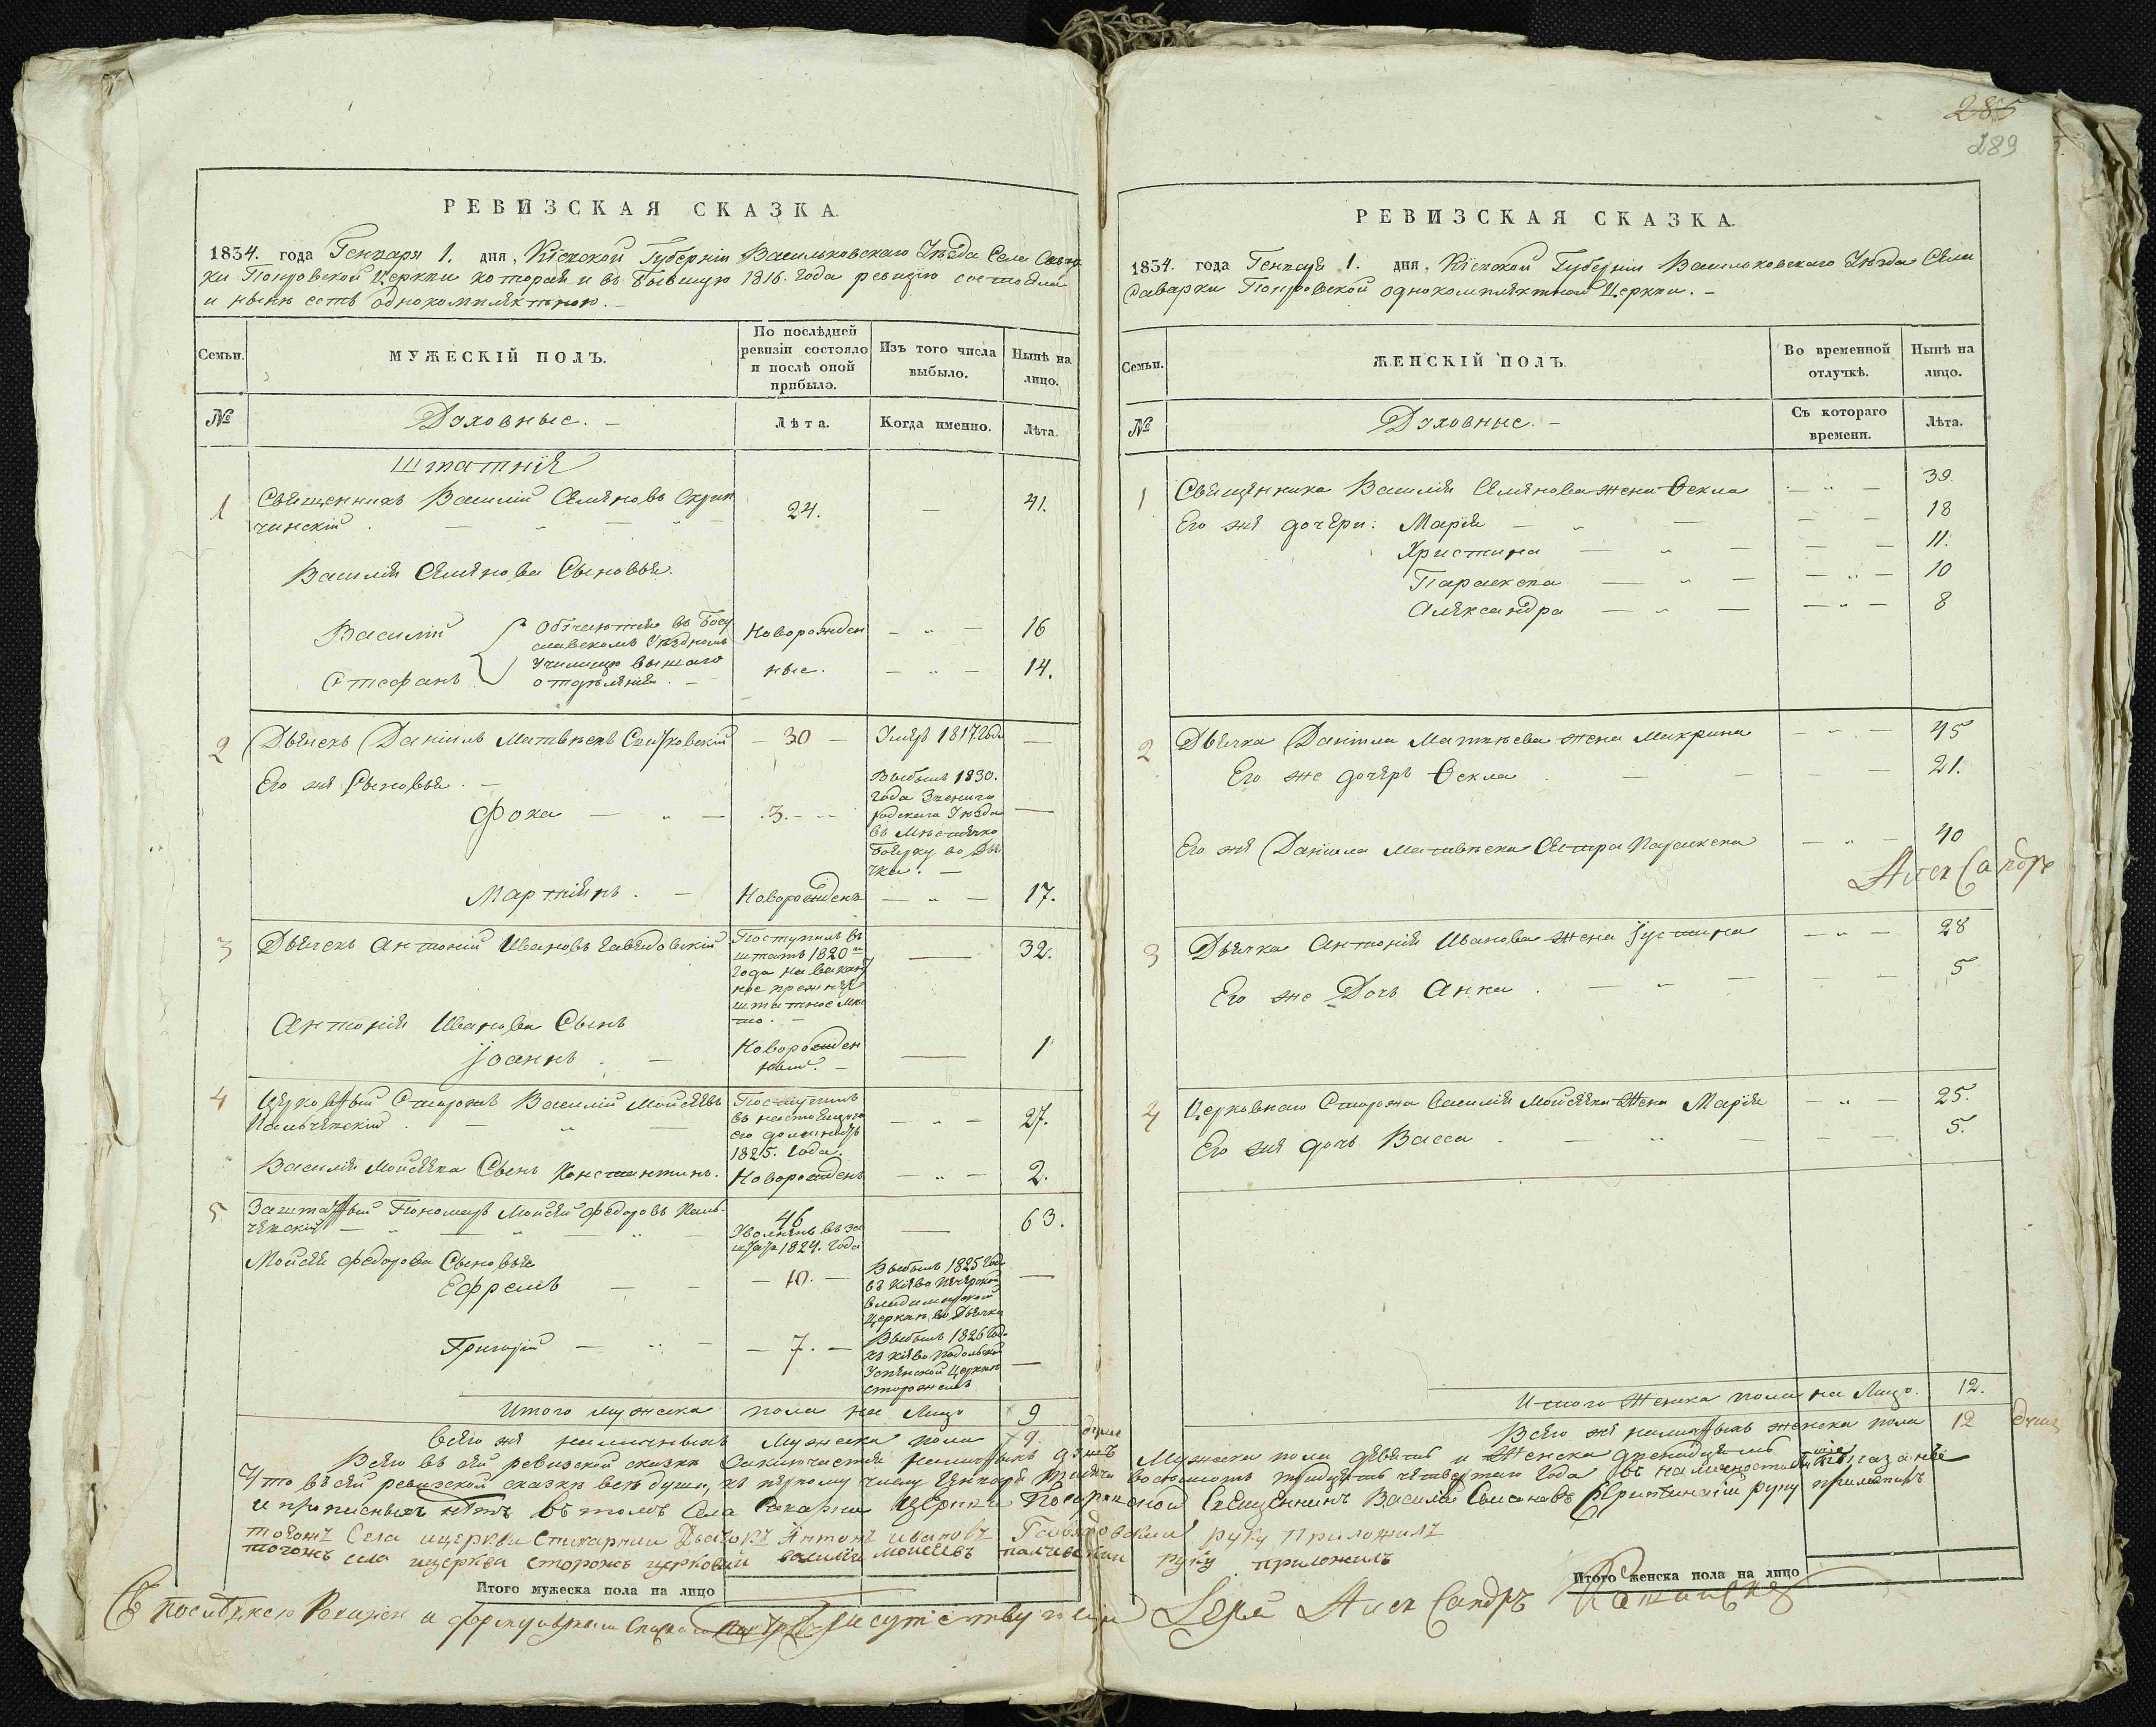 РЕВИЗСКАЯ СКАЗКА.
1834. года Генваря 1. дня, Кіевской Губерніи Васильковскаго Уѣзда Села
ки Покровской Церкви которая и въ бывшую 1816. года ревизію состояла
и нынѣ есть однокомплектною. –
Семьи.
МУЖЕСКІЙ ПОЛЪ.
По послѣдней ревизіи состояло и послѣ оной прибыло.
Изъ того числа выбыло.
Нынѣ на лицо.
№
Духовные. –
Лѣта.
Когда именно.
Лѣта.
Штатніе
1 Священникъ Василій Семеновъ Скрип 24. — 41.
чинскій
Василія Семенова Сыновья.
Василій Обучаются въ Богу Новорожден – „ – 16
славскомъ Уѣздномъ
Училищѣ вышаго
Стефанъ отдѣленія. – ные. – „ – 14.
2 Дьячекъ Даніилъ Матвѣевъ – 30 – Умеръ 1817. года —
Его же Сыновья. –
Фока — „ — 3. Выбылъ 1830. —
года Звениго
родскаго Уѣзда
въ Мѣстечко
во Дья
чка. –
Мартинъ. – Новорожденъ — „ — 17.
3 Дьячекъ Антоній Ивановъ Поступилъ въ — 32.
штатъ 1820
года на вакан
ное прежнее
штатное мѣ
сто. –
Антонія Иванова Сынъ
Іоаннъ. – Новорожден — 1
ный. –
4 Церковный Сторожъ Василій Мойсеевъ Поступилъ — „ — 27.
въ настоящую
его должность
1825. года.
Василія Мойсеева Сынъ Константинъ. Новорожденъ — „ — 2.
5 Заштатный Пономарь Мойсей Федоровъ Паль- 46 — 63.
чевскій Уволенъ въ за
штатъ 1824. года
Мойсея Федорова Сыновья
Ефремъ — – 10. – Выбылъ 1825 года —
въ Кіево Печерской
Владимирской
Церкви во Дьячка
Григорій — „ – – 7. – Выбылъ 1826 года —
къ Кіево Подольской
Успенской Церкви
сторожемъ
Итого мужеска пола на лицо 9
Всего же наличныхъ мужеска пола 9. душъ
Итого мужеска пола на лицо
285
289
РЕВИЗСКАЯ СКАЗКА.
1834. года Генваря 1. дня, Кіевской Губерніи Васильковскаго Уѣзда Села
Покровской однокомплектной Церкви. –
Семьи.
ЖЕНСКІЙ ПОЛЪ.
Во временной отлучкѣ.
Нынѣ на лицо.
№
Духовные. –
Съ котораго времени.
Лѣта.
1 Священника Василія Семенова жена Ѳекла — „ — 39.
Его же дочери: Марія — „ — — — 18
Христина — „ — — — 11.
Параскева — „ — — „ — 10
Александра — „ — — „ — 8
2 Дьячка Даніила Матвѣева жена Макрина – – – 45
Его же дочерь Ѳекла — — 21.
Его же Даніила Матвѣева Сестра Параскева — „ — 40
Александръ
3 Дьячка Антонія Иванова жена Іустина — „ — 28
Его же Дочь Анна. — „ — — — 5
4 Церковнаго Сторожа Василія Мойсеева жена Марія — „ — 25.
Его же дочь Васса — „ — — 5.
Итого женска пола на лицо. 12.
Всего же наличныхъ женска пола 12 душъ
Всего въ сей ревизской сказки заключается наличныхъ душъ Мужеска пола девять и Женска двенадцать
Что въ сей ревизской сказкѣ всѣ души, къ первому числу Генваря тысяча восемьсотъ тридцать четвертаго года въ наличности
и прописныхъ нѣтъ въ томъ Села Церкви Покровской Священникъ Василій Семеновъ Скрипчинскій руку приложилъ
тогожъ Села ицеркви Дьячокъ Антонъ Ивановъ руку Приложилъ
тогожъ села ицеркви сторожъ церковный василій моисеевъ палчевскии руку приложилъ
Александръ
Итого женска пола на лицо